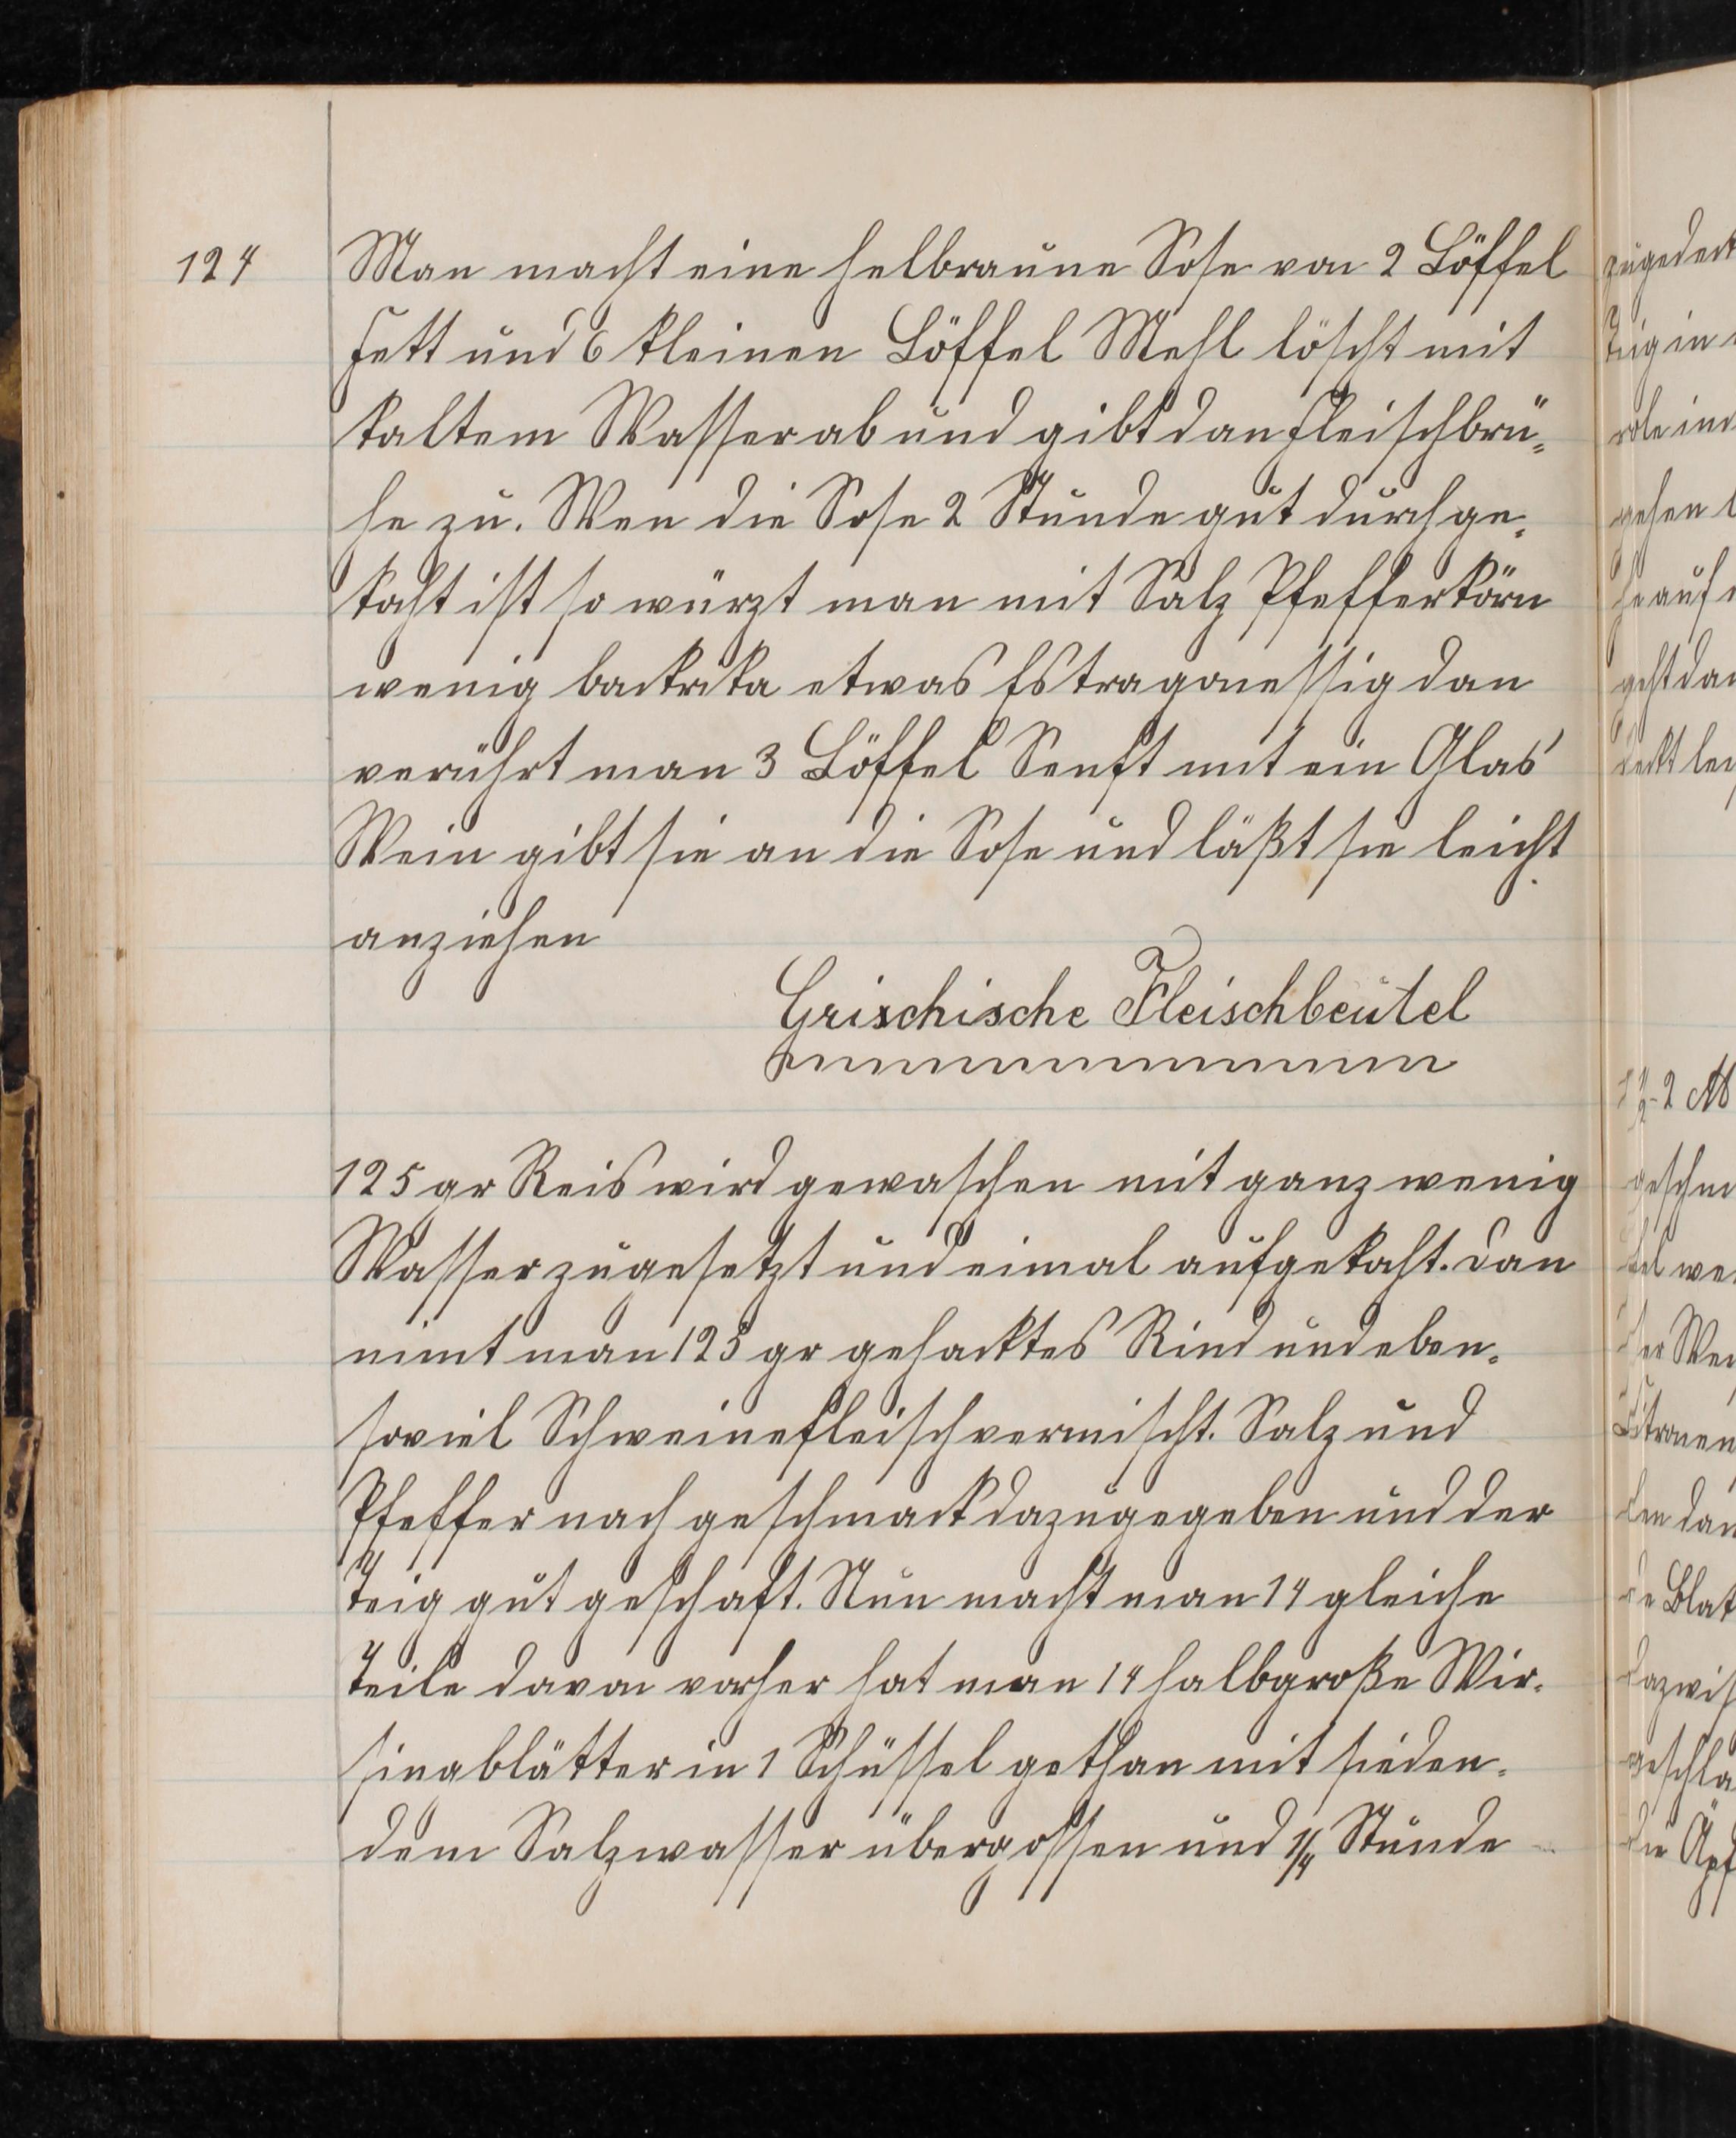 124
Man macht eine helbraune Sose von 2 Löffel
Fett und 6 kleinen Löffel Mehl löscht mit
kaltem Wasser ab und gibt dan Fleischbrü=
he zu. Wen die Sose 2 Stunde gut durchge=
kocht ist so würzt man mit Salz Pfefferkörn
wenig backrika etwas Estragonessig dan
verrührt man 3 Löffel Senft mit ein Glas
Wein gibt sie an die Sose und läßt sie leicht
anziehen
Grischische Fleischbeutel
125 gr Reis wird gewaschen mit ganz wenig
Wasser zugesetzt und eimal aufgekocht. Dan
nimt man 125 gr gehacktes Rind und eben=
soviel Schweinefleisch vermischt. Salz und
Pfeffer nach geschmack dazugegeben und der
Teig gut geschaft. Nun macht man 14 gleiche
Teile davon vorher hat man 14 halbgroße Wir=
singblätter in 1 Schüssel gethan mit sieden=
dem Salzwasser übergossen und 1/4 Stunde